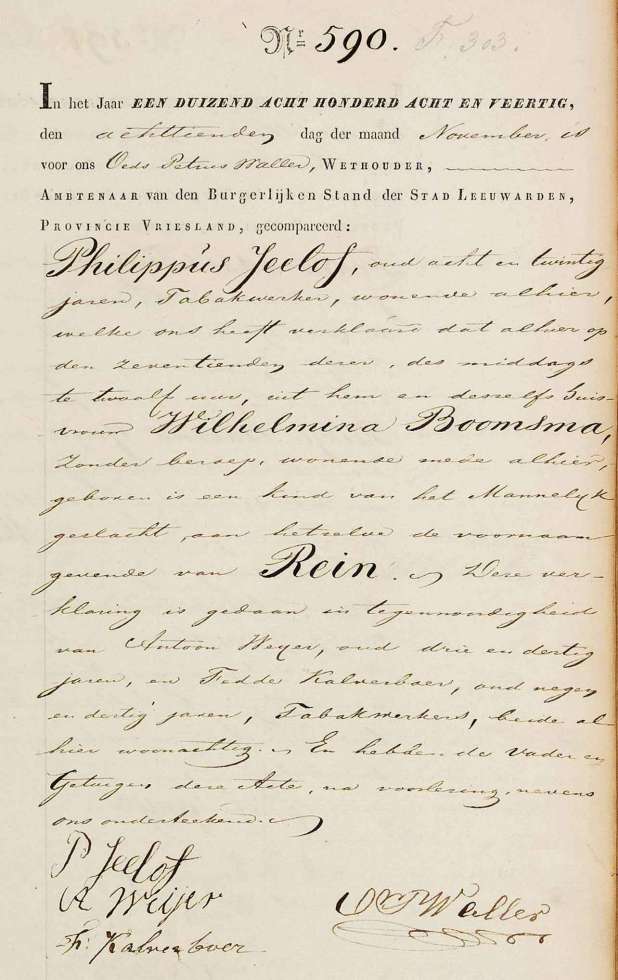 Nr. 590. Fr. 303.
In het Jaar EEN DUIZEND ACHT HONDERD ACHT EN VEERTIG,
den achttienden dag der maand November, is
voor ons Oeds Petrus Waller, WETHOUDER,
AMBTENAAR van den Burgerlijken Stand der STAD LEEUWARDEN,
PROVINCIE VRIESLAND, gecompareerd:
Philippus Jeelof, oud acht en twintig
jaren, Tabakwerker, wonende alhier,
welke ons heeft verklaard dat alhier op
den zeventienden dezer, des middags
te twaalf uur, uit hem en desselfs huis-
vrouw Wilhelmina Boomsma,
zonder beroep, wonende mede alhier,
geboren is een kind van het Mannelijk
geslacht, aan hetzelve de voornaam
gevende van Rein. Deze ver-
klaring is gedaan in tegenwoordigheid
van Antoon Weyer, oud drie en dertig
jaren, en Fedde Kalverboer, oud negen
en dertig jaren, Tabakwerkers, beide al-
hier woonachtig. En hebben de Vader en
Getuigen deze Acte, na voorlezing, nevens
ons onderteekend.
P Jeelof
A Weijer
OPWaller
F: Kalverboer